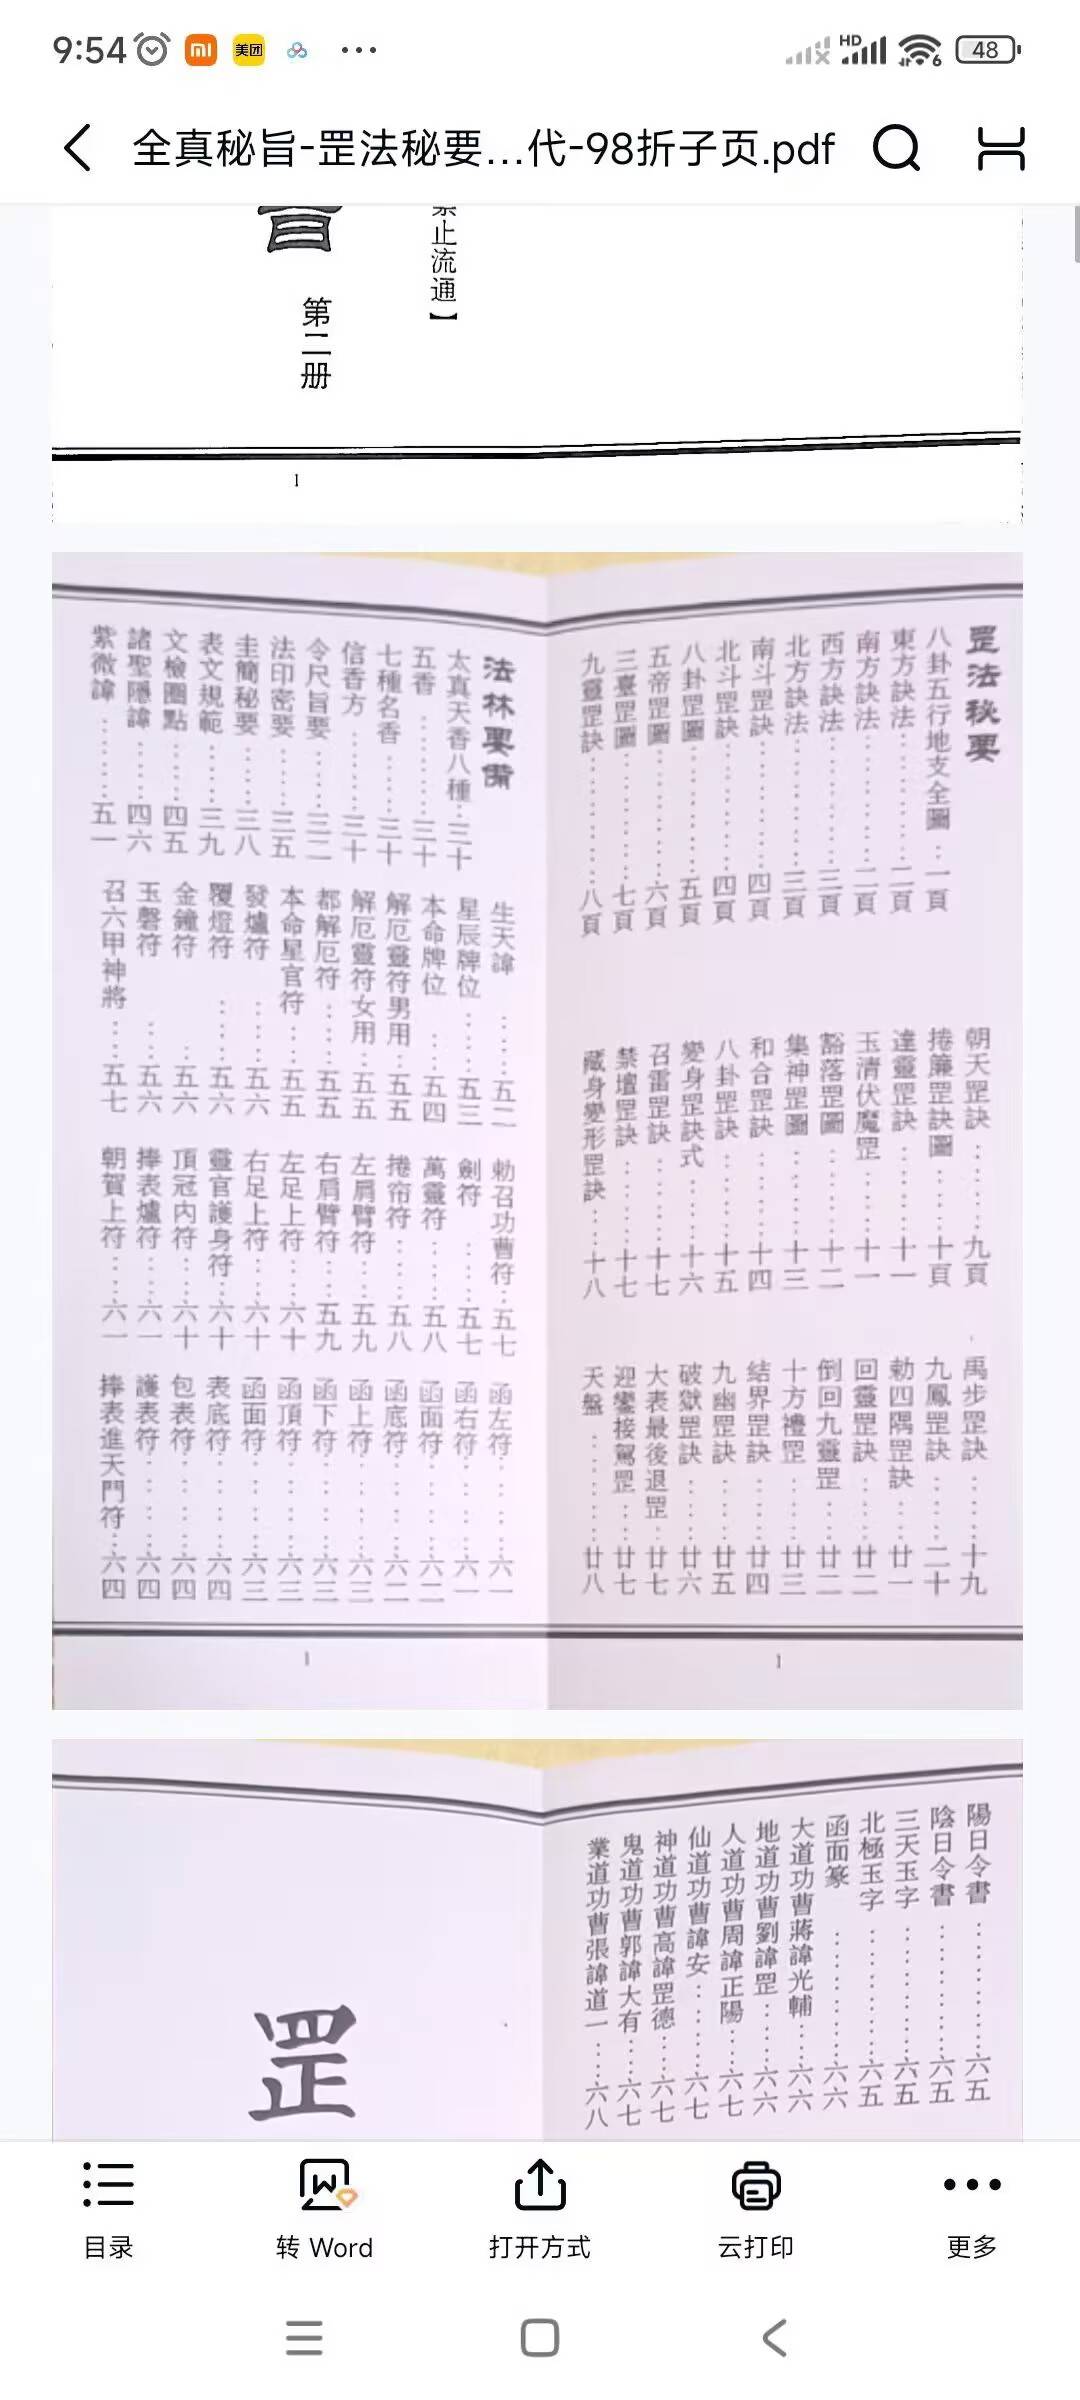 9:54
美团
HD
6
48
全真秘旨-罡法秘要...代-98折子页.pdf
止流通】
第二册
1
罡法秘要
八卦五行地支全圖..一頁
東方訣法........二頁
南方訣法........二頁
西方訣法........三頁
北方訣法........三頁
南斗罡訣........四頁
北斗罡訣........四頁
八卦罡圖........五頁
五帝罡圖........六頁
三臺罡圖........七頁
九靈罡訣........八頁
朝天罡訣......九頁
捲簾罡訣圖....十頁
達靈罡訣......十一
玉清伏魔罡....十一
豁落罡圖......十二
集神罡圖......十三
和合罡訣......十四
八卦罡訣......十五
變身罡訣式....十六
召雷罡訣......十七
禁壇罡訣......十七
藏身變形罡訣...十八
禹步罡訣.....十九
九鳳罡訣.....二十
勅四隅罡訣...廿一
回靈罡訣.....廿二
倒回九靈罡...廿二
十方禮罡.....廿三
结界罡訣.....廿四
九幽罡訣.....廿五
破獄罡訣.....廿六
大表最後退罡..廿七
迎鑾接駕罡...廿七
天盤........廿八
法林要備
太真天香八種.三十
五香........三十
七種名香....三十
信香方......三十
令尺旨要....三二
法印密要....三五
圭簡秘要....三八
表文規範....三九
文檢圈點....四五
諸聖隱諱....四六
紫微諱......五一
生天諱.....五二
星辰牌位....五三
本命牌位...五四
解厄靈符男用.五五
解厄靈符女用.五五
都解厄符....五五
本命星官符...五五
發爐符.....五六
覆燈符.....五六
金鐘符.....五六
玉磬符.....五六
召六甲神將...五七
勅召功曹符..五七
劍符......五七
萬靈符.....五八
捲帘符.....五八
左肩臂符...五九
右肩臂符...五九
左足上符...六十
右足上符...六十
靈官護身符..六十
頂冠内符...六十
捧表爐符...六一
朝賀上符...六一
函左符.....六一
函右符.....六一
函面符.....六二
函底符.....六二
函上符.....六三
函下符.....六三
函頂符.....六三
函面符.....六三
表底符.....六四
包表符.....六四
護表符.....六四
捧表進天門符..六四
1
1
陽日令書........六五
陰日令書........六五
三天玉字........六五
北極玉字........六五
函面篆.........六六
大道功曹蔣諱光輔...六六
地道功曹劉諱罡....六六
人道功曹周諱正陽...六七
仙道功曹諱安.....六七
神道功曹高諱罡德...六七
鬼道功曹郭諱大有...六七
業道功曹張諱道一...六八
罡
目录
转 Word
打开方式
云打印
更多